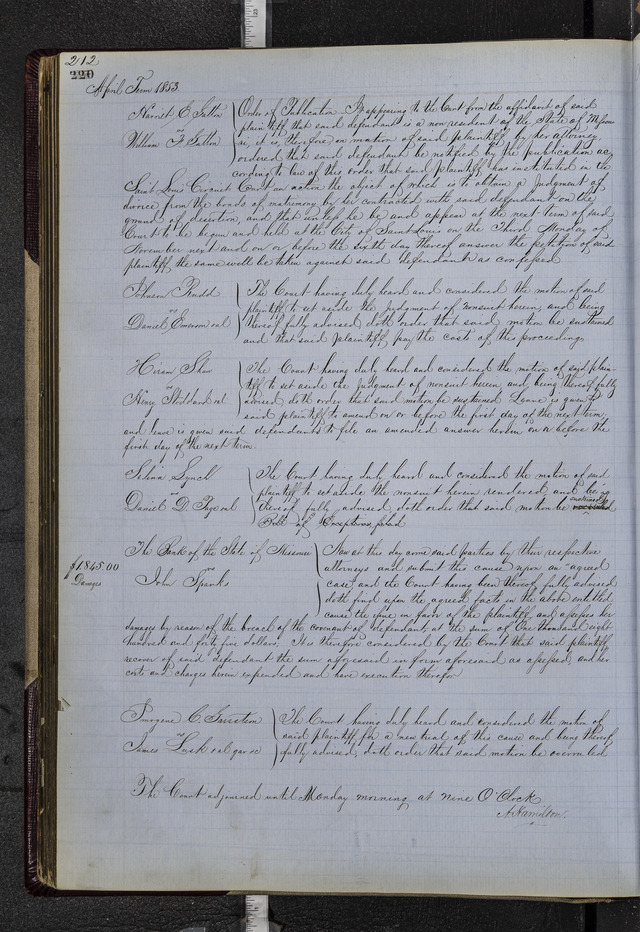 212
220
April Term 1853
Harriet E Sutton
vs
William F Sutton
Order of Publication It appearing to the Court from the affidavit of said
plaintiff that said defendant is a non resident of the State of Missou
ri, it is, therefore on motion of said plaintiff by her attorney,
ordered that said defendant be notified by the publication ac
cording to law of this order that said plaintiff has instituted in the
Saint Louis Circuit Court an action the object of which is to obtain a judgment of
divorce from the bonds of matrimony by her contracted with said defendant on the
ground of desertion, and that unless he be and appear at the next term of said
Court to be begun and held at the City of Saint Louis on the Third Monday of
November next and on or before the sixth day thereof answer the petition of said
plaintiff the same will be taken against said defendant as confessed
Johnson Rudd
vs
Daniel Emerson et al
The Court having duly heard and considered the motion of said
plaintiff to set aside the judgment of nonsuit herein, and being
thereof fully advised doth order that said motion be sustained
and that said plaintiff pay the costs of this proceeding
Hiram Shaw
vs
Henry Stoddard et al
The Court having duly heard and considered the motion of said plain-
tiff to set aside the judgment of nonsuit herein, and being thereof fully
advised doth order that said motion be sustained Leave is given
said plaintiff to amend on or before the first day of the next term,
and leave is given said defendants to file an amended answer herein on or before the
first day of the next term.
Lynch
vs
Daniel D Page et al
The Court having duly heard and considered the motion of said
plaintiff to set aside the nonsuit herein rendered and being
thereof fully advised, doth order that said motion be sustained
Bill of Exceptions filed
The Bank of the State of Missouri
vs
John Sparks
$1845.00
Damages
Now at this day come said parties by their respective
attorneys and submit this cause upon an "agreed
case" and the Court having been thereof fully advised
doth find upon the agreed facts in the above entitled
cause the issue in favor of the plaintiff and assesses her
damages by reason of the breach of the covenant of defendant, at the sum of One thousand eight
hundred and forty five dollars, It is therefore considered by the Court that said plaintiff
recover of said defendant the sum aforesaid in form aforesaid as assessed, and her
costs and charges herein expended and have execution therefor
Imogene C
vs
James Lusk et al gar ee
The Court having duly heard and considered the motion of
said plaintiff for a new trial of this cause and being thereof
fully advised, doth order that said motion be overruled
The Court adjourned until Monday morning at nine O'Clock
A Hamilton